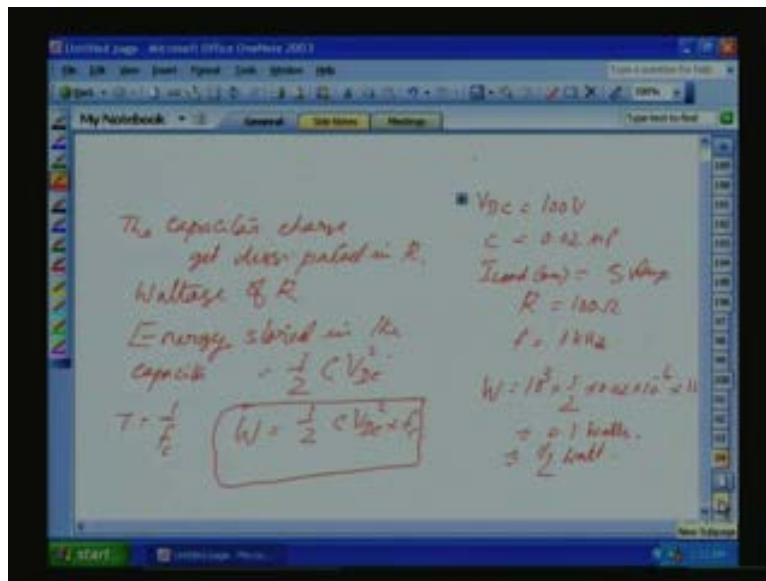 Untitled page - Microsoft Office OneNote 2003
File Edit View Insert Format Tools Window Help
Type a question for help
100%
My Notebook
General
Side Notes
Meetings
Type text to find
The capacitor charge
get dissipated in R.
Wattage of R
Energy stored in the
capacito = 1/2 C V_DC^2
T = 1/f_c
W = 1/2 C V_DC^2 × f_c
V_DC = 100V
C = 0.02 μf
I_load (max) = 5 Amp
R = 100Ω
f = 1 kHz
W = 10^3 × 1/2 × 0.02 × 10^-6 × 1
= 0.1 watts.
= 1/2 watt
New Subpage
start
Untitled page - Micro...